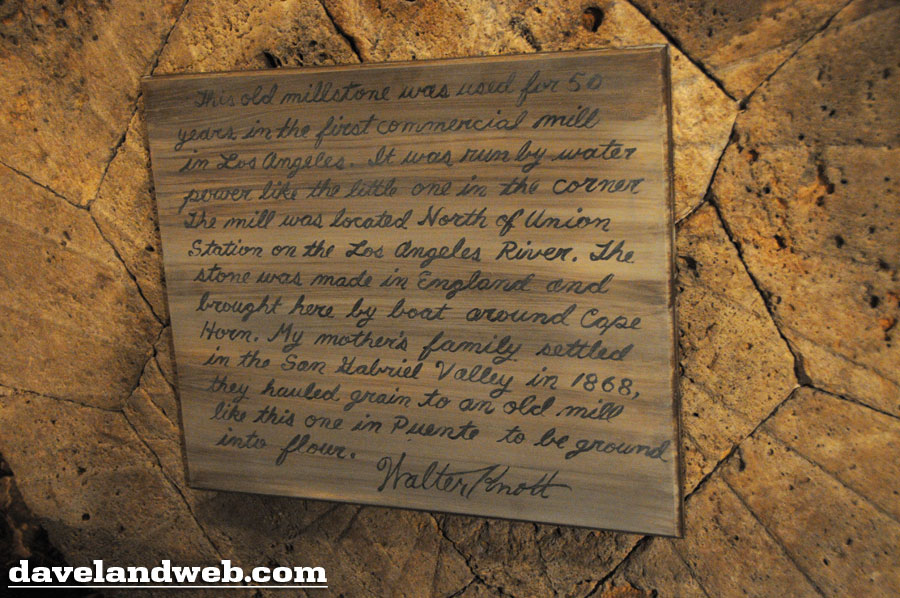 This old millstone was used for 50
years in the first commercial mill
in Los Angeles. It was run by water
power like the little one in the corner
The mill was located North of Union
Station on the Los Angeles River. The
stone was made in England and
brought here by boat around Cape
Horn. My mother's family settled
in the San Gabriel Valley in 1868,
they hauled grain to an old mill
like this one in Puente to be ground
into flour.
Walter Knott
davelandweb.com